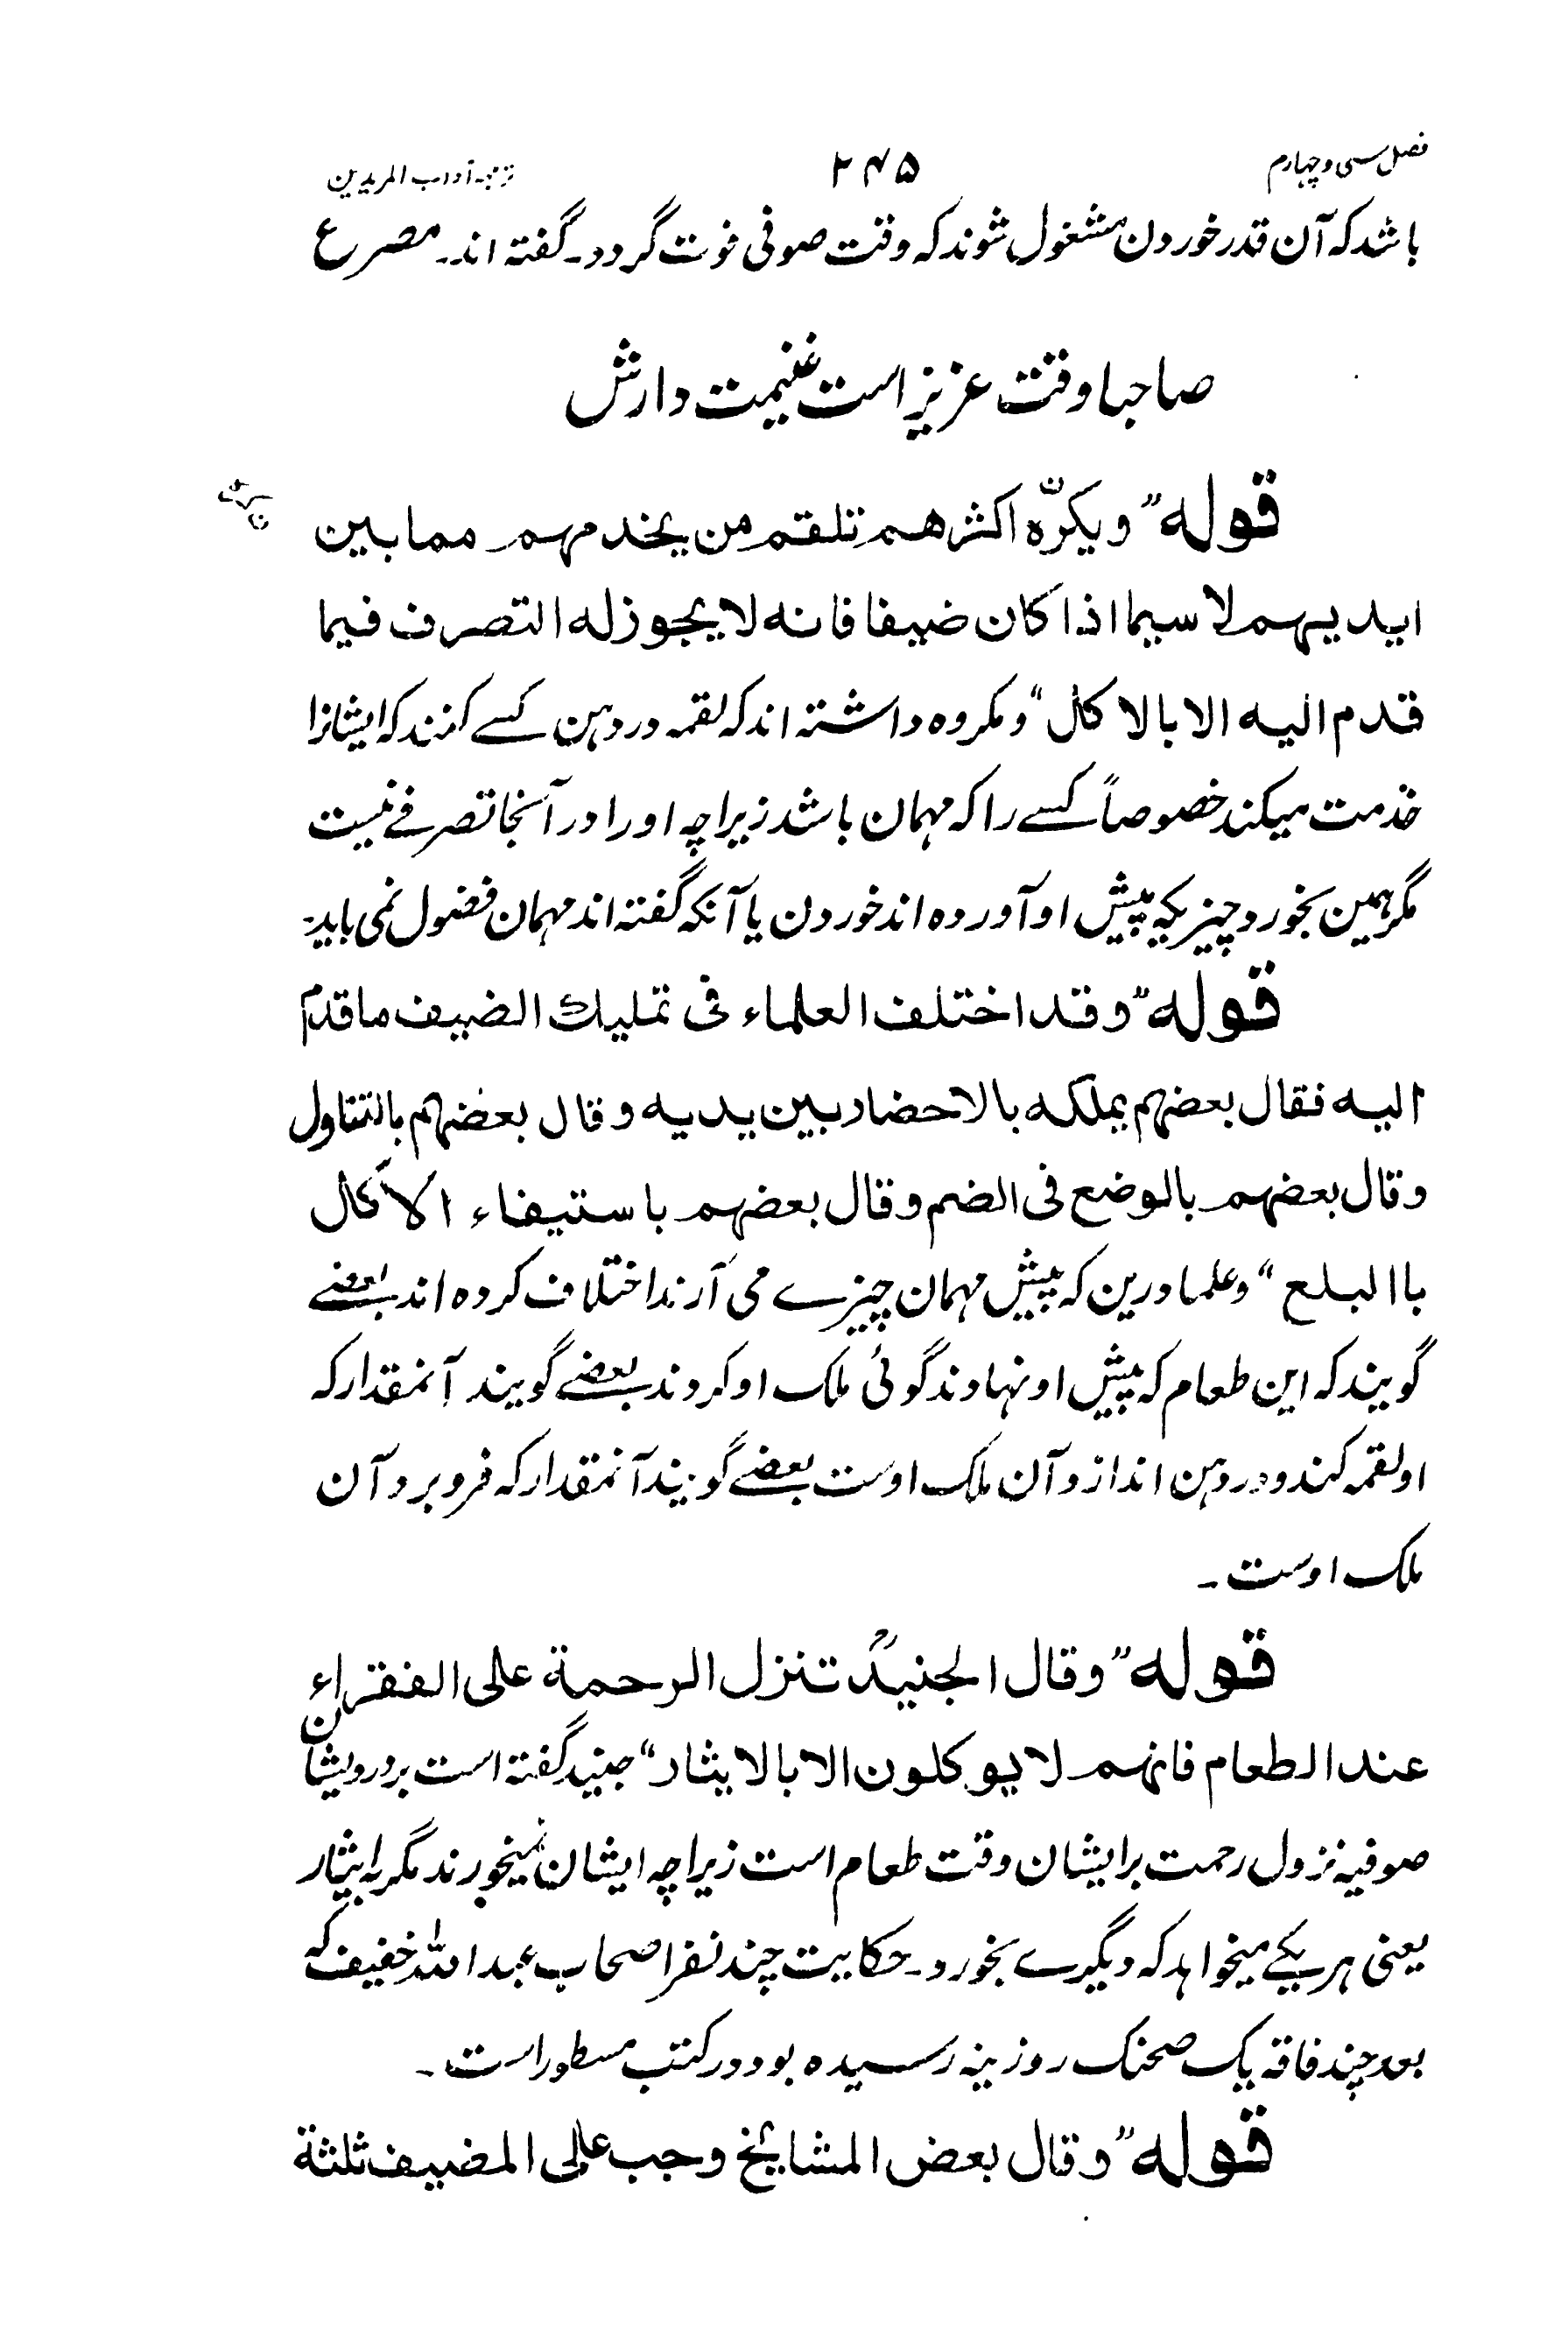 فصل سی و چہارم
۲۴۵
ترجمہ آداب المریدین
باشد که آن قدر خوردن مشغول شوند که وقت صوفی فوت گردد۔ گفته اند۔ مصرع
صاحبا وقت عزیز است غنیمت دارش
قوله "ویکرہ اکثرهم تلقم من یخدمهم مما بین
ایدیهم لا سیما اذا کان ضیفا فانه لا یجوز له التصرف فیما
قدم الیه الا بالاکل" و مکروه داشته اند که لقمه در دہن کسے کنند که ایشانرا
خدمت میکند خصوصاً کسے را که مہمان باشد زیراچه او را در آنجا تصرفے نیست
مگر ہمین بخورد چیزیکه پیش او آورده اند خوردن یا آنکه گفته اند مہمان فضول نمی باید۔
قوله "وقد اختلف العلماء فی تملیك الضیف ما قدم
الیه فقال بعضهم یملکه بالاحضار بین یدیه وقال بعضهم بالتناول
وقال بعضهم بالوضع فی الضم وقال بعضهم باستیفاء الاکال
باالبلع" و علما درین که پیش مہمان چیزے می آرند اختلاف کرده اند بعضے
گویند که این طعام که پیش او نہادند گوئی ملک او کردند بعضے گویند آنمقدار که
او لقمه کند و در دہن اندازد آن ملک اوست بعضے گویند آنمقدار که فرو برد آن
ملک اوست۔
قوله "وقال الجنیدؒ تنزل الرحمة علی الفقراء
عند الطعام فانهم لا یوکلون الا بالایثار" جنید گفته است بر درویشان
صوفیه نزول رحمت بر ایشان وقت طعام است زیراچه ایشان نمیخورند مگر بہ ایثار
یعنی ہر یکے میخواہد که دیگرے بخورد۔ حکایت چند نفر اصحاب عبدالله خفیف که
بعد چند فاقه یک صحنک روزینه رسیده بود در کتب مسطور است۔
قوله "وقال بعض المشایخ وجب علی المضیف ثلثة